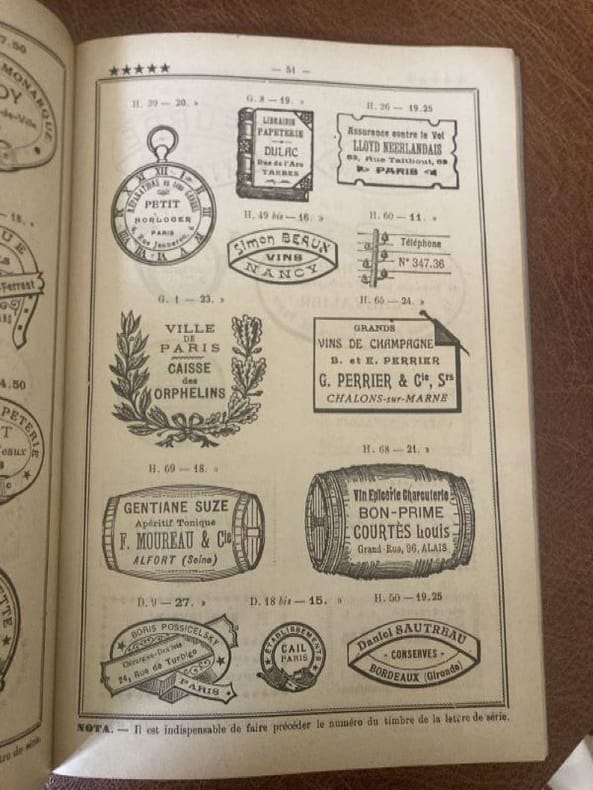 ★★★★★ — 51 —
H. 39 — 20. »
RÉPARATIONS EN TOUS GENRES
PETIT
HORLOGER
PARIS
6, Rue Jenneron, 6
G. 8 — 19. »
LIBRAIRIE
PAPETERIE
DULAC
Rue de l'Arc
TARBES
H. 36 — 19.25
Assurance contre le Vol
LLOYD NEERLANDAIS
63, Rue Taitbout, 63
PARIS
H. 49 bis — 16. »
Simon BEAUX
VINS
NANCY
H. 60 — 11. »
Téléphone
N° 347.36
G. 1 — 23. »
VILLE
DE
PARIS
CAISSE
des
ORPHELINS
H. 65 — 24. »
GRANDS
VINS DE CHAMPAGNE
B. et E. PERRIER
G. PERRIER & Cie, Srs
CHALONS-sur-MARNE
H. 69 — 18. »
GENTIANE SUZE
Apéritif Tonique
F. MOUREAU & Cie
ALFORT (Seine)
H. 68 — 21. »
Vin Epicerie Charcuterie
BON-PRIME
COURTÈS Louis
Grand-Rue, 96, ALAIS
D. 9 — 27. »
BORIS POSSICELSKY
Chirurgien-Dentiste
24, Rue de Turbigo
PARIS
D. 18 bis — 15. »
ETABLISSEMENTS
CAIL
PARIS
H. 50 — 19.25
Daniel SAUTREAU
- CONSERVES -
BORDEAUX (Gironde)
NOTA. — Il est indispensable de faire précéder le numéro du timbre de la lettre de série.
7.50
MONARQUE
de-Ville
18. »
Ferrant
4.50
PAPETERIE
ETTE
tre de série.